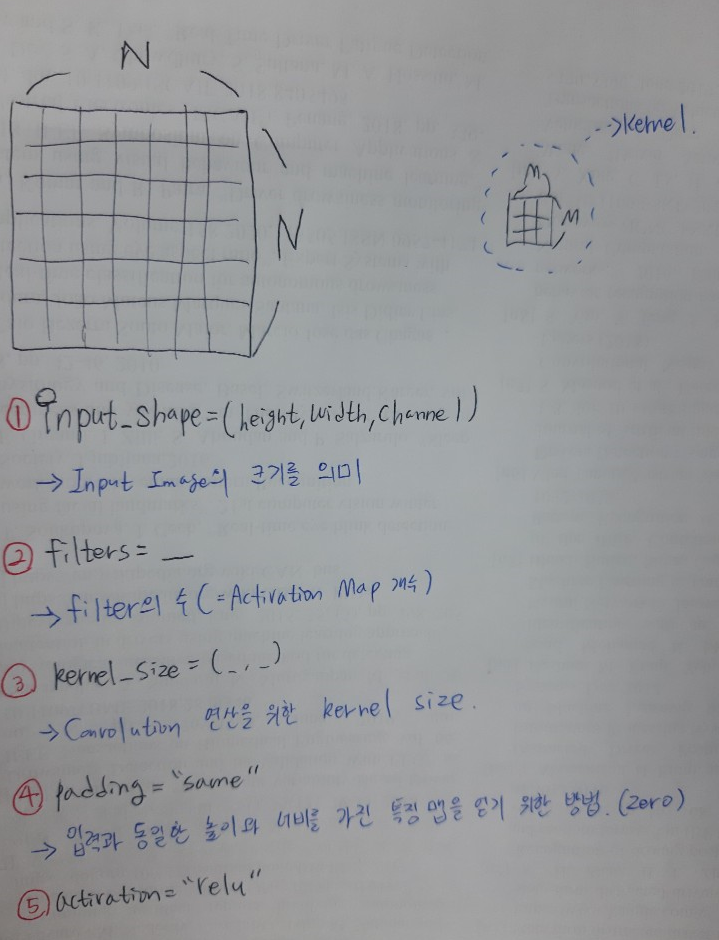 N
N
→kernel.
M
M
① input_shape=(height, width, channel)
→ Input Image의 크기를 의미
② filters= _
→ filter의 수 (=Activation Map 개수)
③ kernel_size = (_, _)
→ Convolution 연산을 위한 kernel size.
④ padding = "same"
→ 입력과 동일한 높이와 너비를 가진 특징맵을 얻기 위한 방법. (zero)
⑤ activation= "relu"